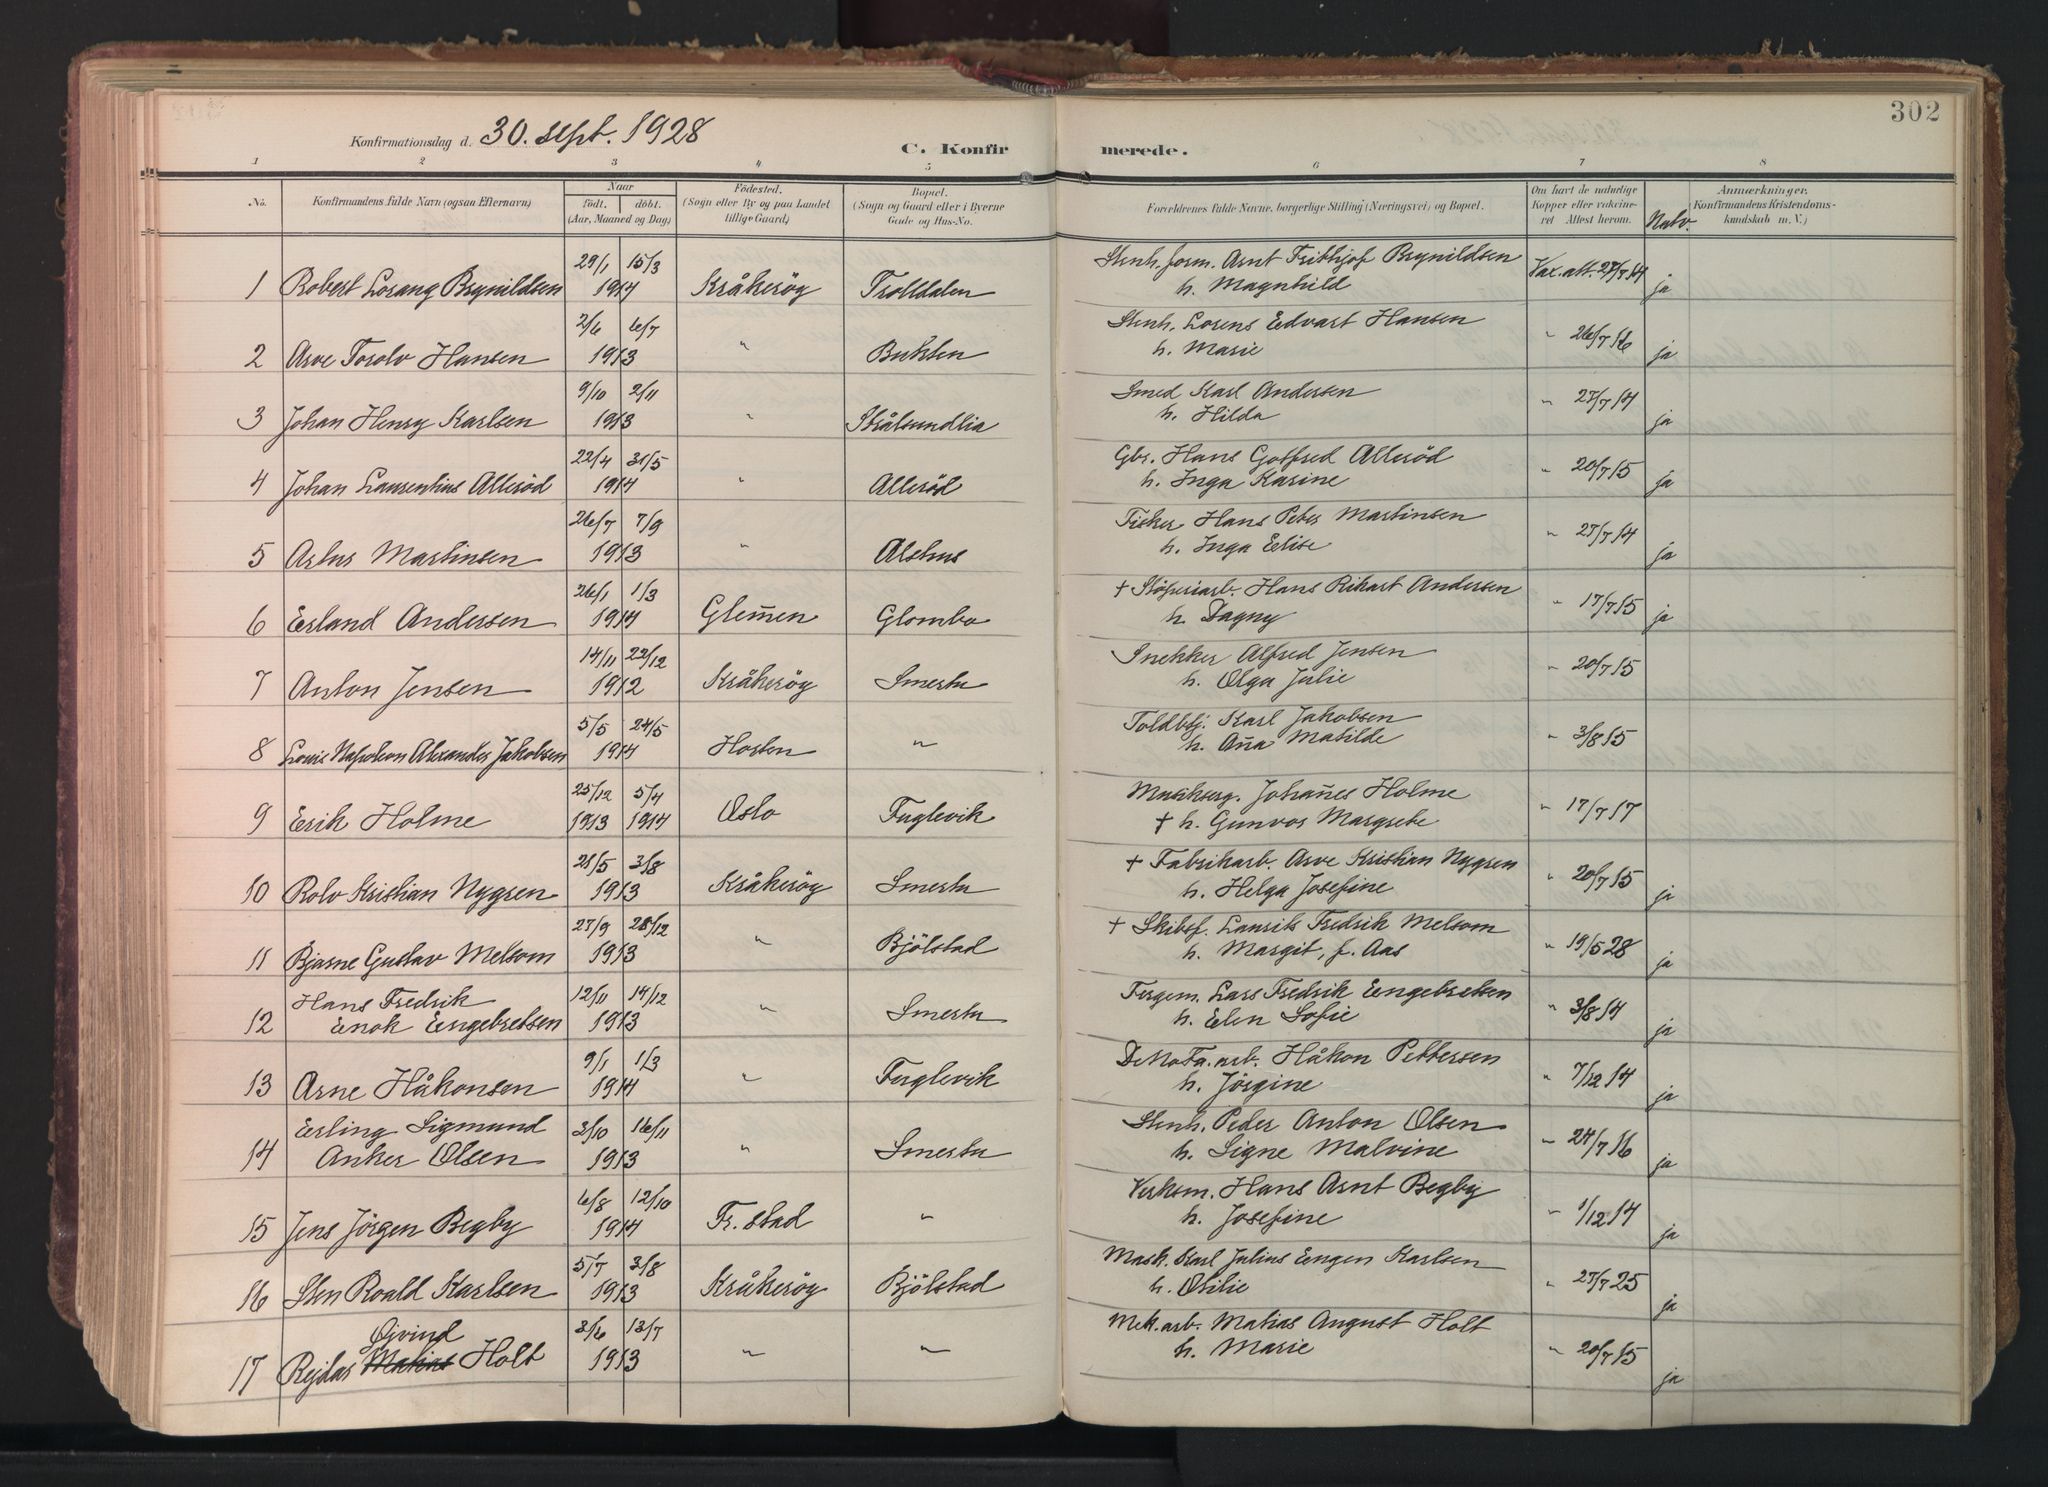 302
Konfirmationsdag d. 30. sept. 1928
C. Konfirmerede.
1 2 3 4 5 6 7 8
No. Konfirmandens fulde Navn (ogsaa Efternavn) Naar født. døbt. (Aar, Maaned og Dag) Fødested. (Sogn eller By og paa Landet tillige Gaard) Bopæl. (Sogn og Gaard eller i Byerne Gade og Hus-No. Forældrenes fulde Navne, borgerlige Stilling (Næringsvei) og Bopæl. Om havt de naturlige Kopper eller vakcineret Attest herom. Natv. Anmærkninger. Konfirmandens Kristendomskundskab m. V.)
29/1 15/3 Stenh. form. Arnt Frithjof Brynildsen
1 Robert Lorang Brynildsen 1914 Kråkerøy Trolldalen h. Magnhild Vax. att. 27/7 14 ja
2/6 6/7 Stenh. Lorens Edvart Hansen
2 Arve Torolv Hansen 1913 " Bukten h. Marie " 26/7 16 ja
9/10 2/11 Smed Karl Andersen
3 Johan Henry Karlsen 1913 " Stålsundlia h. Hilda " 27/7 14 ja
22/4 31/5 Gbr. Hans Gotfred Allerød
4 Johan Laurentius Allerød 1914 " Allerød h. Inga Karine " 20/7 15 ja
26/7 7/9 Fisker Hans Peter Martinsen
5 Artur Martinsen 1913 " Alshus h. Inga Elise " 27/7 14 ja
26/1 1/3 + Støperiarb. Hans Rikart Andersen
6 Erland Andersen 1914 Glem̄en Glombo h. Dagny " 17/7 15 ja
14/11 22/12 Snekker Alfred Jensen
7 Anton Jensen 1912 Kråkerøy Smertu h. Olga Julie " 20/7 15
5/5 24/5 Toldbtj. Karl Jakobsen
8 Louis Napoleon Alexander Jakobsen 1914 Horten " h. An̄a Matilde " 3/8 15
25/12 5/4 Musikerg. Johan̄es Holme
9 Erik Holme 1913 1914 Oslo Fuglevik + h. Gunvor Margrete " 17/7 17
21/5 3/8 + Fabrikarb. Arve Kristian Nygren
10 Rolv Kristian Nygren 1913 Kråkerøy Smertu h. Helga Josefine " 20/7 15 ja
27/9 28/12 + Skibsf. Laurits Fredrik Melsom
11 Bjarne Gustav Melsom 1913 " Bjølstad h. Margit, f. Aas " 19/5 28 ja
Hans Fredrik 12/11 14/12 Fergem. Lars Fredrik Engebretsen
12 Enok Engebretsen 1913 " Smertu h. Elen Sofie " 3/8 14 ja
9/1 1/3 DeNoFa. arb. Håkon Pettersen
13 Arne Håkonsen 1914 " Fuglevik h. Jørgine " 7/12 14 ja
Erling Sigmund 3/10 16/11 Stenh. Peder Anton Olsen
14 Anker Olsen 1913 " Smertu h. Signe Malvine " 24/7 16 ja
6/8 12/10 Verksm. Hans Arnt Begby
15 Jens Jørgen Begby 1914 Fr.stad " h. Josefine " 1/12 14 ja
5/7 3/8 Mask. Karl Julius Eugen Karlsen
16 Sten Roald Karlsen 1913 Kråkerøy Bjølstad h. Otilie " 27/7 25 ja
Øivind 3/6 13/7 Mek. arb. Matias August Holt
17 Reidar Matias Holt 1913 " " h. Marie " 20/7 15 ja